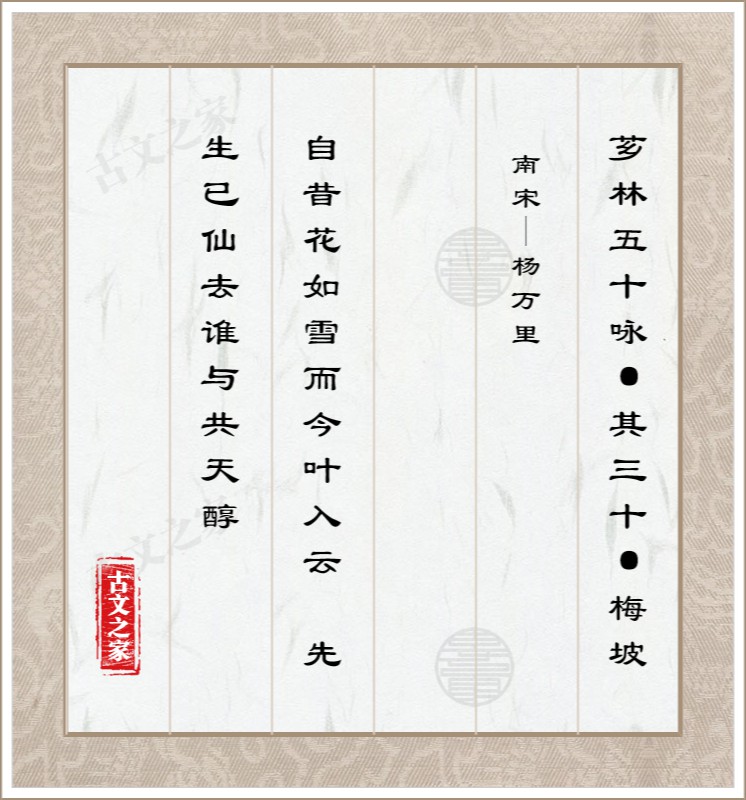 芗林五十咏●其三十●梅坡
南宋—杨万里
自昔花如雪而今叶入云 先
生已仙去谁与共天醇
古文之家
古文之家
文之家